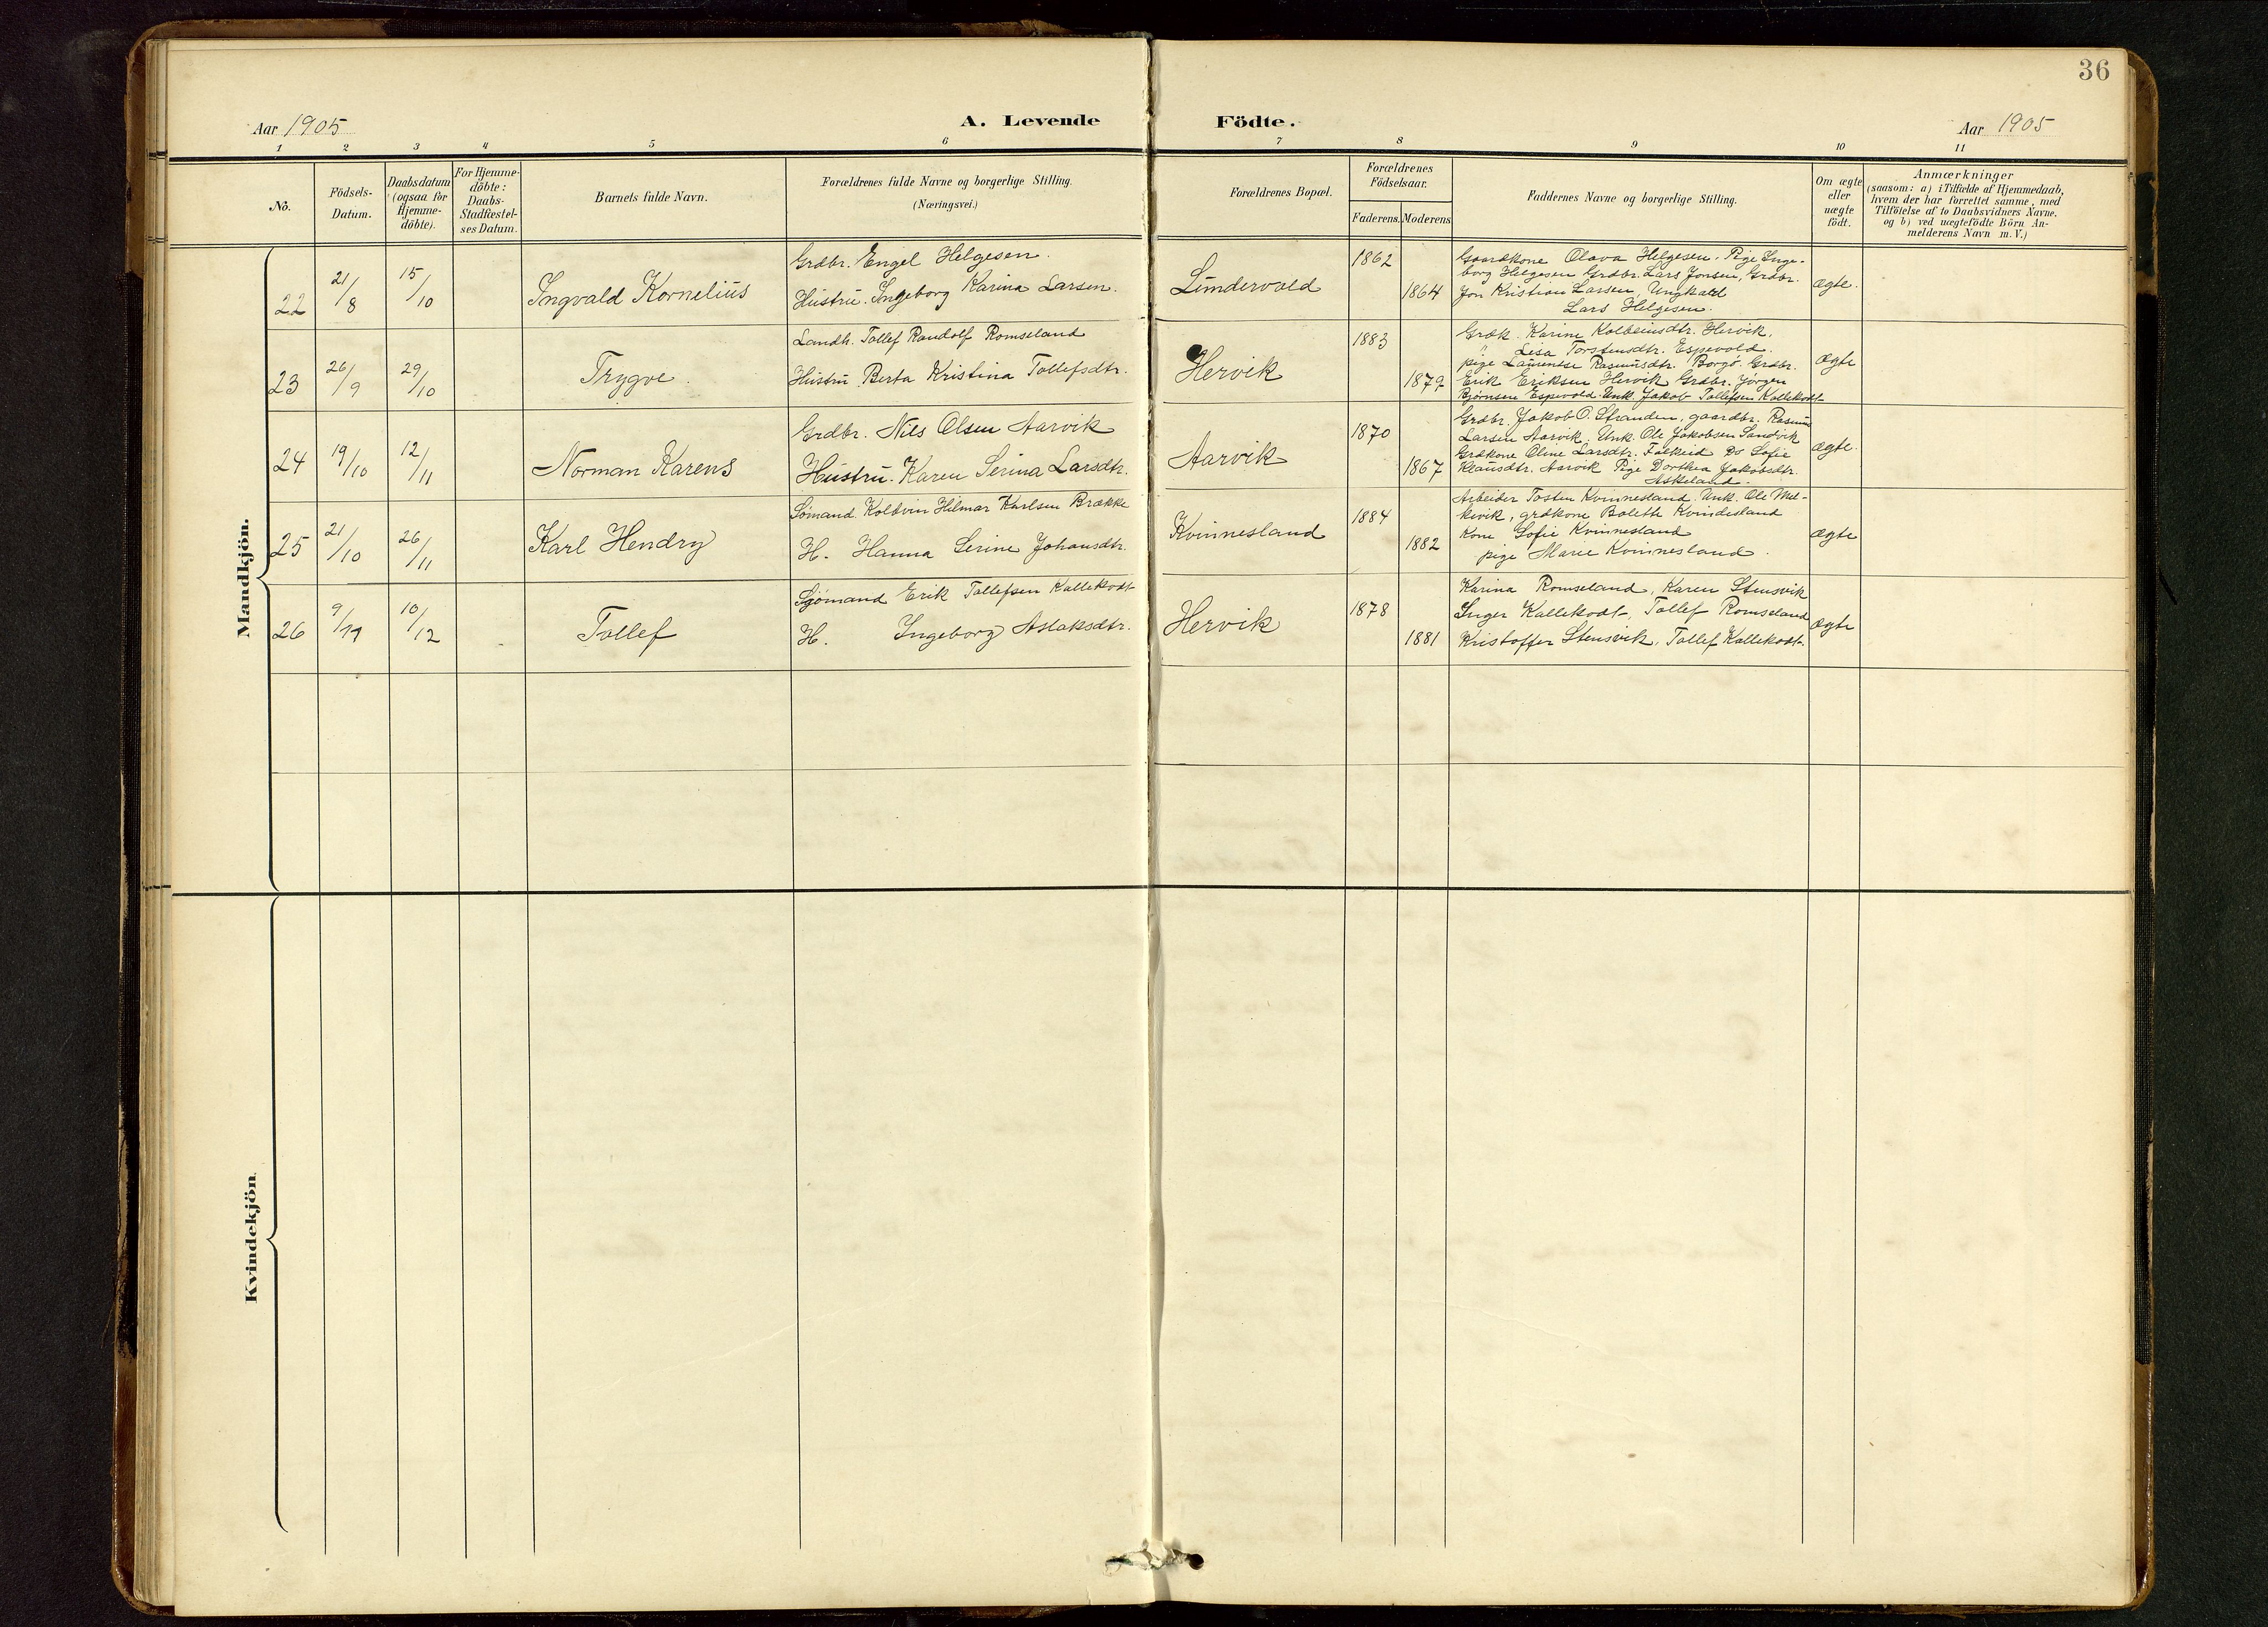 36
Aar 1905
A. Levende Födte.
Aar 1905
1 2 3 4 5 6 7 8 9 10 11
No.
Födsels-
Datum.
Daabsdatum
(ogsaa for
Hjemme-
döbte).
For Hjemme-
döbte:
Daabs-
Stadfæstel-
ses Datum.
Barnets fulde Navn.
Forældrenes fulde Navne og borgerlige Stilling.
(Næringsvei.)
Forældrenes Bopæl.
Forældrenes
Födselsaar.
Faderens.
Moderens
Faddernes Navne og borgerlige Stilling.
Om ægte
eller
uægte
födt.
Anmærkninger
(saasom: a) i Tilfælde af Hjemmedaab,
hvem der har forrettet samme, med
Tilföielse af to Daabsvidners Navne,
og b) ved uægtefödte Börn An-
melderens Navn m. V.)
Mandkjön.
22
21/8
15/10
Ingvald Kornelius
Grdbr. Engel Helgesen.
Hustru. Ingeborg Karina Larsen.
Lundervold
1862
1864
Gaardkone Olava Helgesen. Pige Inge-
borg Helgesen Grdbr. Lars Jonsen, Grdbr.
Jon Kristian Larsen, Ungkarl
Lars Helgesen.
ægte.
23
26/9
29/10
Trygve.
Landh. Tollef Randolf Romseland
Hustru Berta Kristina Tollefsdtr.
Hervik
1883
1879
Grdk. Karine Kolbeinsdtr. Hervik.
" Lisa Torstensdtr. Espevold.
pige Laurentse Rasmusdtr. Borgö. Grdbr.
Erik Eriksen Hervik Grdbr. Jörgen
Bjørnsen Espevold. Unk. Jakob Tollefsen Kallekodt
ægte
24
19/10
12/11
Norman Karens
Grdbr. Nils Olsen Aarvik
Hustru. Karen Serina Larsdtr.
Aarvik
1870
1867
Grdbr. Jakob O. Stranden, gaardbr. Rasmus
Larsen Aarvik. Unk. Ole Jakobsen Sandvik
Grdkone Oline Larsdtr. Falkeid Do Sofie
Klausdtr. Aarvik Pige Dorthea Jakobsdtr.
Askeland.
ægte.
25
21/10
26/11
Karl Hendry
Sömand Kolbein Hilmar Karlsen Brække
H. Hanna Serine Johansdtr.
Kvinnesland
1884
1882
Arbeider Tosten Kvinnesland. Unk. Ole Mel-
kevik, grdkone Bolette Kvindesland
Kone Sofie Kvinnesland
pige Marie Kvinnesland.
ægte
26
9/11
10/12
Tollef
Sjömand Erik Tollefsen Kallekodt
H. Ingeborg Aslaksdtr.
Hervik
1878
1881
Karina Romseland, Karen Stensvik
Inger Kallekodt, Tollef Romseland
Kristoffer Stensvik, Tollef Kallekodt.
ægte
Kvindekjön